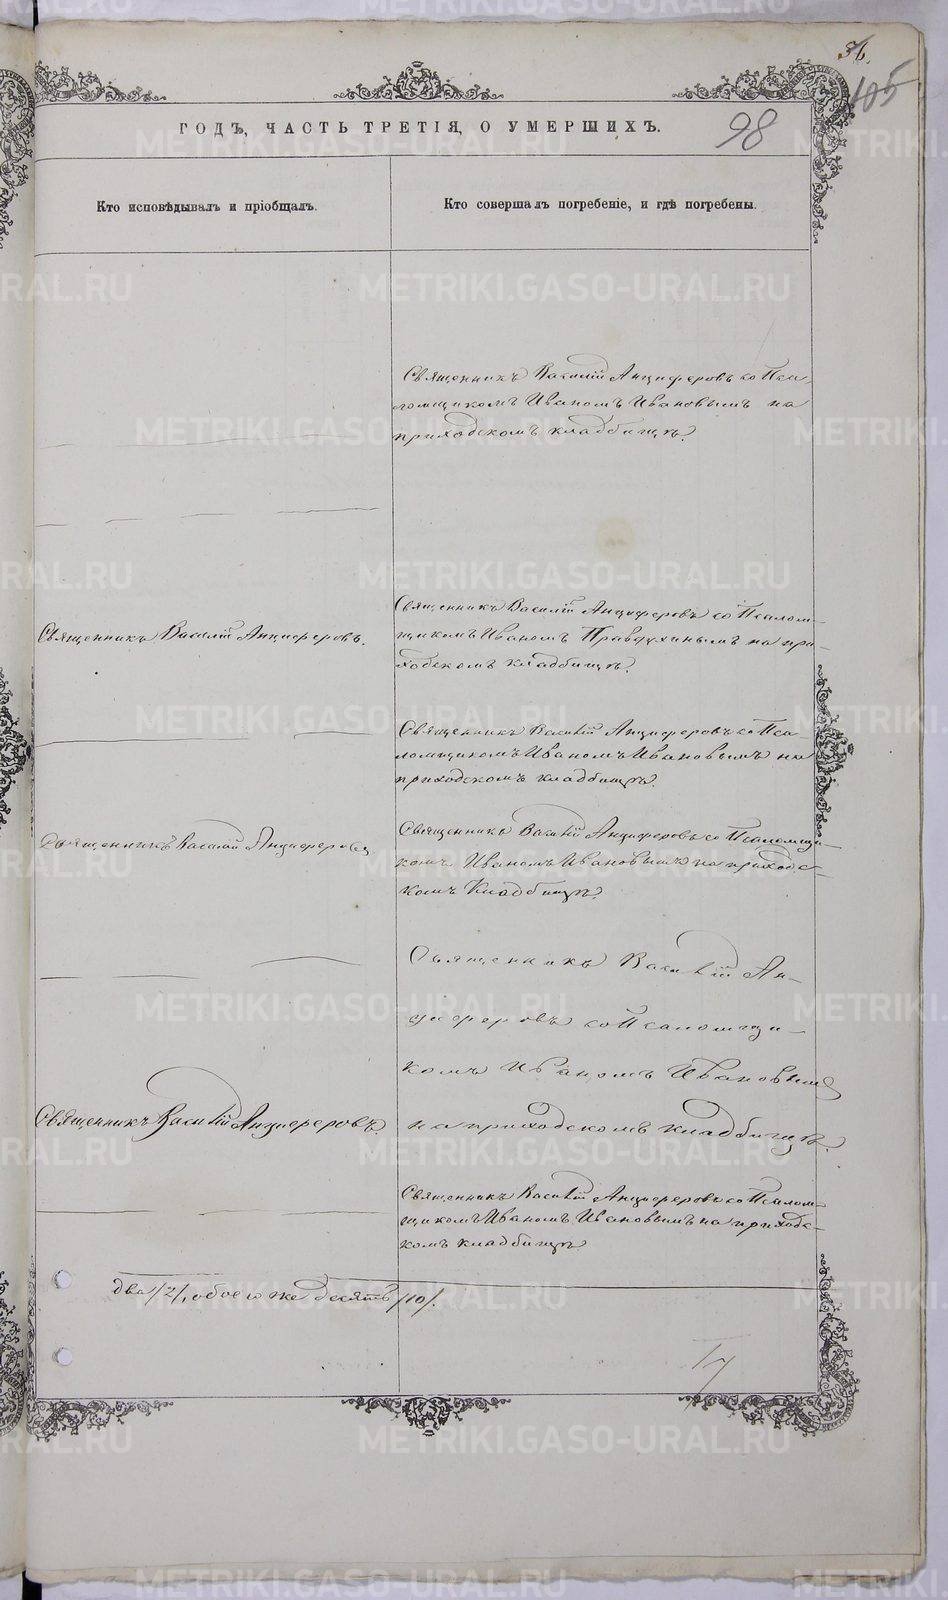 36.
105
98
ГОДЪ, ЧАСТЬ ТРЕТІЯ, О УМЕРШИХЪ.
Кто исповѣдывалъ и пріобщалъ.
Кто совершалъ погребеніе, и гдѣ погребены.
Священникъ Василій Анциферовъ со Пса-
ломщикомъ Иваномъ Ивановымъ на
приходскомъ кладбищѣ.
Священникъ Василій Анциферовъ.
Священникъ Василій Анциферовъ со Псалом-
щикомъ Иваномъ Правдухинымъ на при-
ходскомъ кладбищѣ.
Священникъ Василій Анциферовъ со Пса-
ломщикомъ Иваномъ Ивановымъ на
приходскомъ кладбищѣ.
Священникъ Василій Анциферовъ
Священникъ Василій Анциферовъ со Псаломщи-
комъ Иваномъ Ивановымъ на приходс-
комъ Кладбищѣ.
Священникъ Василій Ан-
циферовъ со Псаломщи-
комъ Иваномъ Ивановымъ
на приходскомъ кладбищѣ.
Священникъ Василій Анциферовъ.
Священникъ Василій Анциферовъ со Псалом-
щикомъ Иваномъ Ивановымъ на приходс-
комъ кладбищѣ
два /2/, обоего же десять /10/.
METRIKI.GASO-URAL.RU